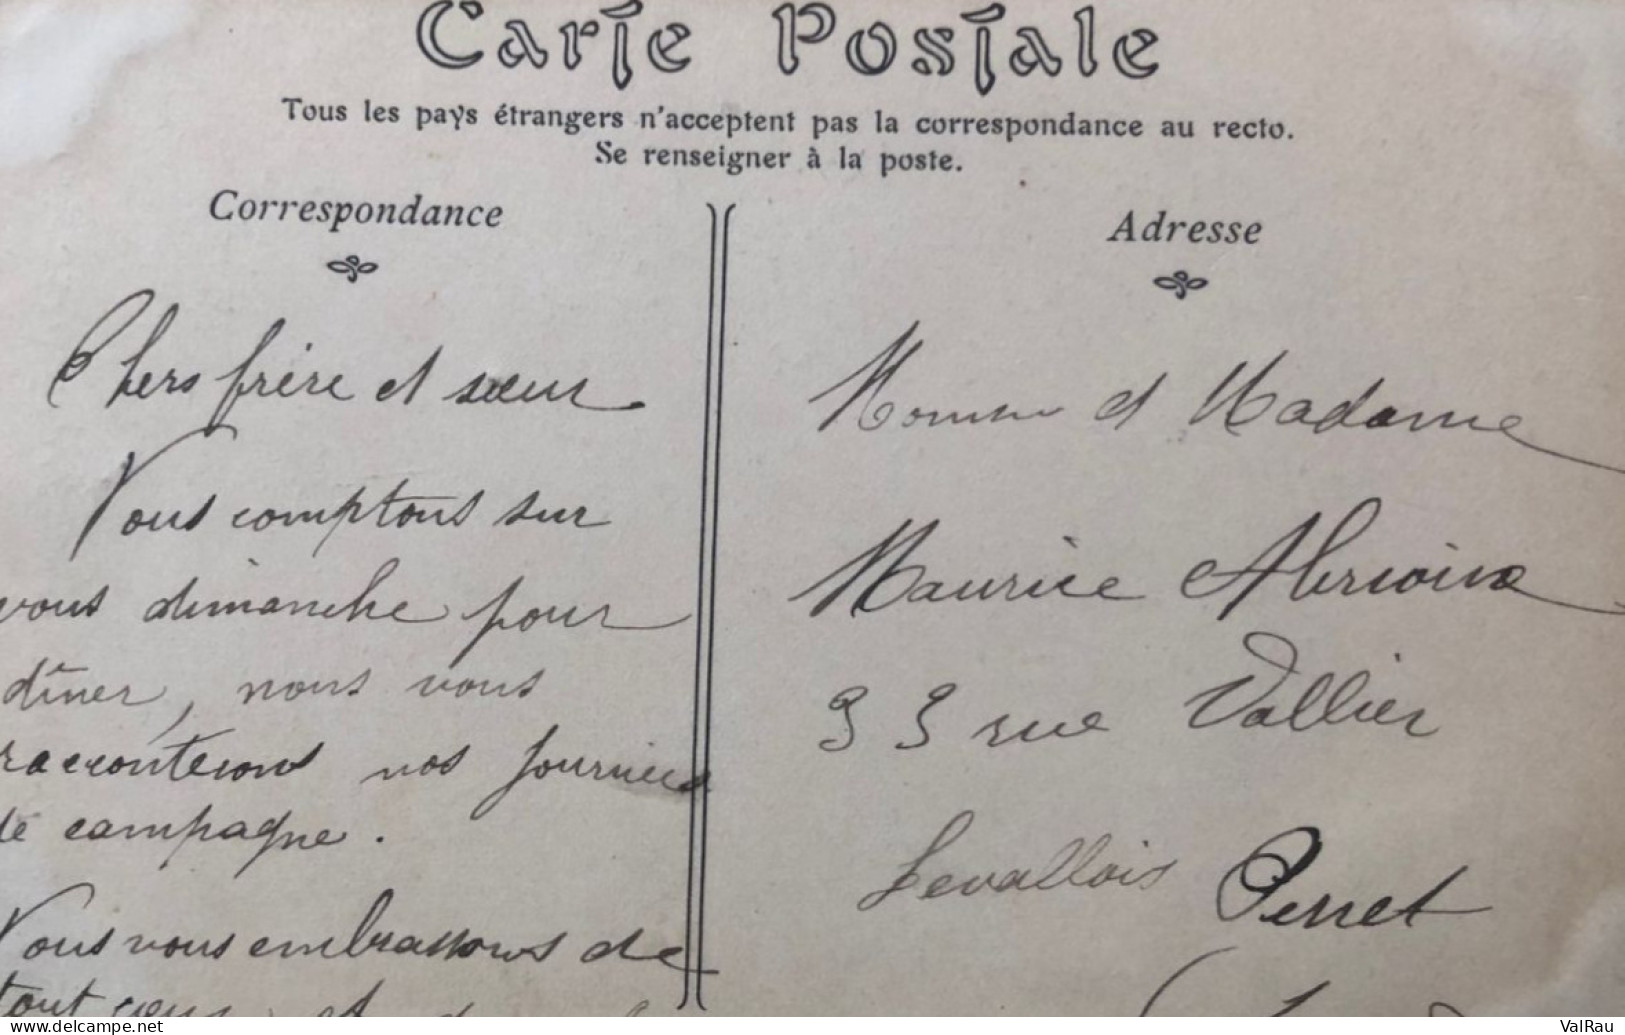 Carte Postale
Tous les pays étrangers n'acceptent pas la correspondance au recto.
Se renseigner à la poste.
Correspondance
Chers frère et sœur
Nous comptons sur
vous dimanche pour
dîner, nous vous
raconterons nos journées
de campagne.
Nous vous embrassons de
tout cœur et
Adresse
et Madame
Maurice
33 rue Vallier
Levallois Perret
delcampe.net
ValRau